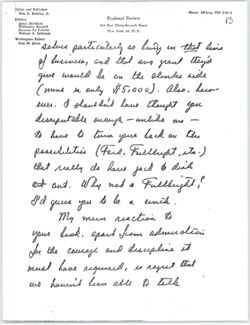 Editor and Publisher
Wm. F. Buckley, Jr.
Editors
James Burnham
Willmoore Kendall
Suzanne La Follette
William S. Schlamm
Washington Editor
Sam M. Jones
National Review
New York 16, N.Y.
13
particularly as being in that line
of business, and that any grant they'd
give would be on the slender side
(mine is only $5,000). Also, how-
ever, I shouldn't have thought you
disreputable enough — unlike me —
to have to turn your back on the
possibilities (Ford, Fulbright, etc.)
that really do have jack to dish
out. Why not a Fulbright?
I'd guess you to be a cinch.
My main reaction to
your book, apart from admiration
for the courage and discipline it
must have required, is regret that
we haven't been able to talk